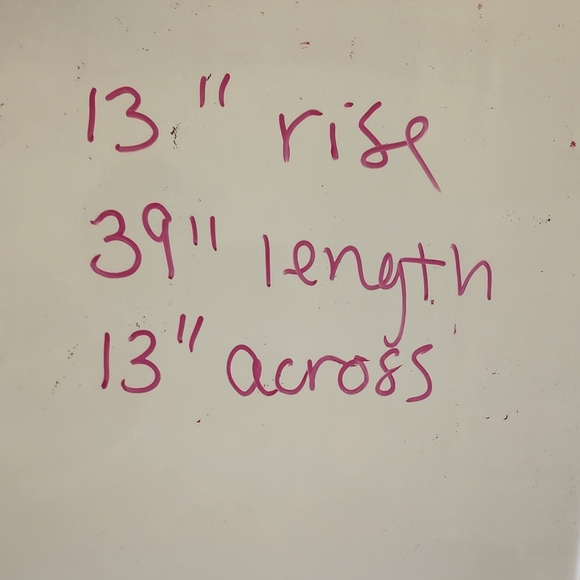 13" rise
39" length
13" across